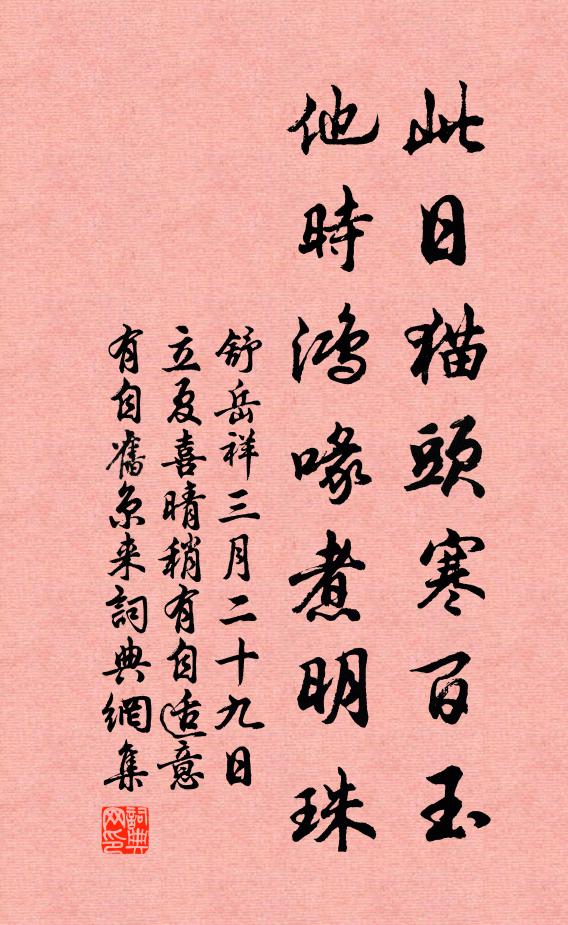 此日猫頭寒百玉
他時鴻喙煮明珠
舒岳祥三月二十九日
立夏喜晴稍有自适意
有自舊京来詞典網集
詞典
网印